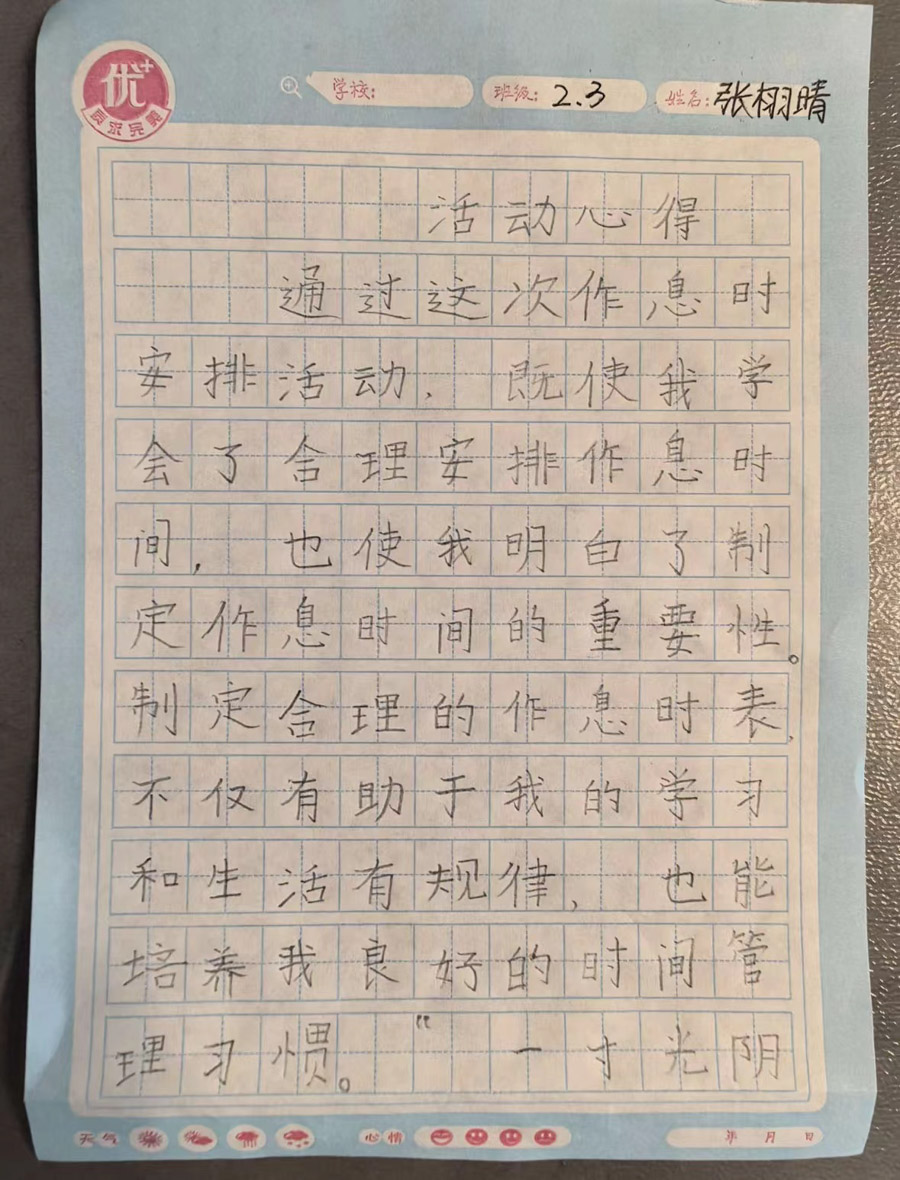 优+
质求完美
学校: 班级: 2.3 姓名: 张栩晴
活动心得
通过这次作息时
安排活动，既使我学
会了合理安排作息时
间，也使我明白了制
定作息时间的重要性。
制定合理的作息时表，
不仅有助于我的学习
和生活有规律，也能
培养我良好的时间管
理习惯。“一寸光阴
天气 心情 年 月 日